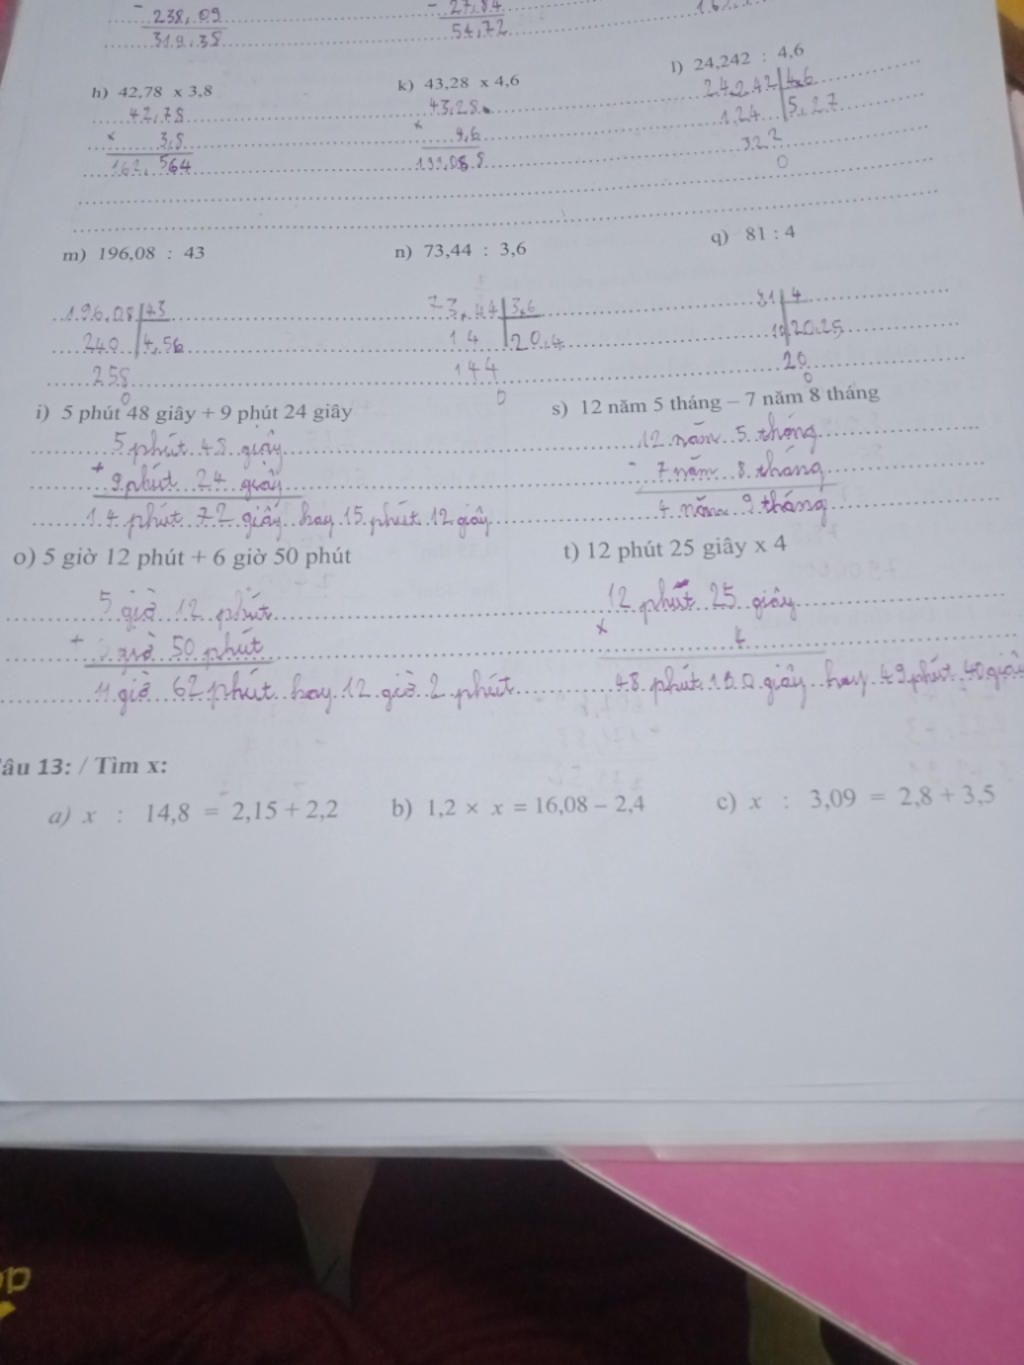 - 238,09
319,38
- 27,84
54,72
h) 42,78 x 3,8
k) 43,28 x 4,6
l) 24,242 : 4,6
42,78
x 3,8
162,564
43,28
x
24,242 4,6
124 5,27
322
0
m) 196,08 : 43
n) 73,44 : 3,6
q) 81 : 4
196,08 43
240 4,56
258
0
73,44 3,6
14 20,4
144
0
81 4
10 20,25
20
0
i) 5 phút 48 giây + 9 phút 24 giây
s) 12 năm 5 tháng – 7 năm 8 tháng
5 phút 48 giây
+ 9 phút 24 giây
14 phút 72 giây hay 15 phút 12 giây
12 năm 5 tháng
- 7 năm 8 tháng
4 năm 9 tháng
o) 5 giờ 12 phút + 6 giờ 50 phút
t) 12 phút 25 giây x 4
5 giờ 12 phút
+ giờ 50 phút
11 giờ 62 phút hay 12 giờ 2 phút
12 phút 25 giây
x 4
48 phút giây hay 49 phút 40 giây
âu 13: / Tìm x:
a) x : 14,8 = 2,15 + 2,2
b) 1,2 × x = 16,08 – 2,4
c) x : 3,09 = 2,8 + 3,5